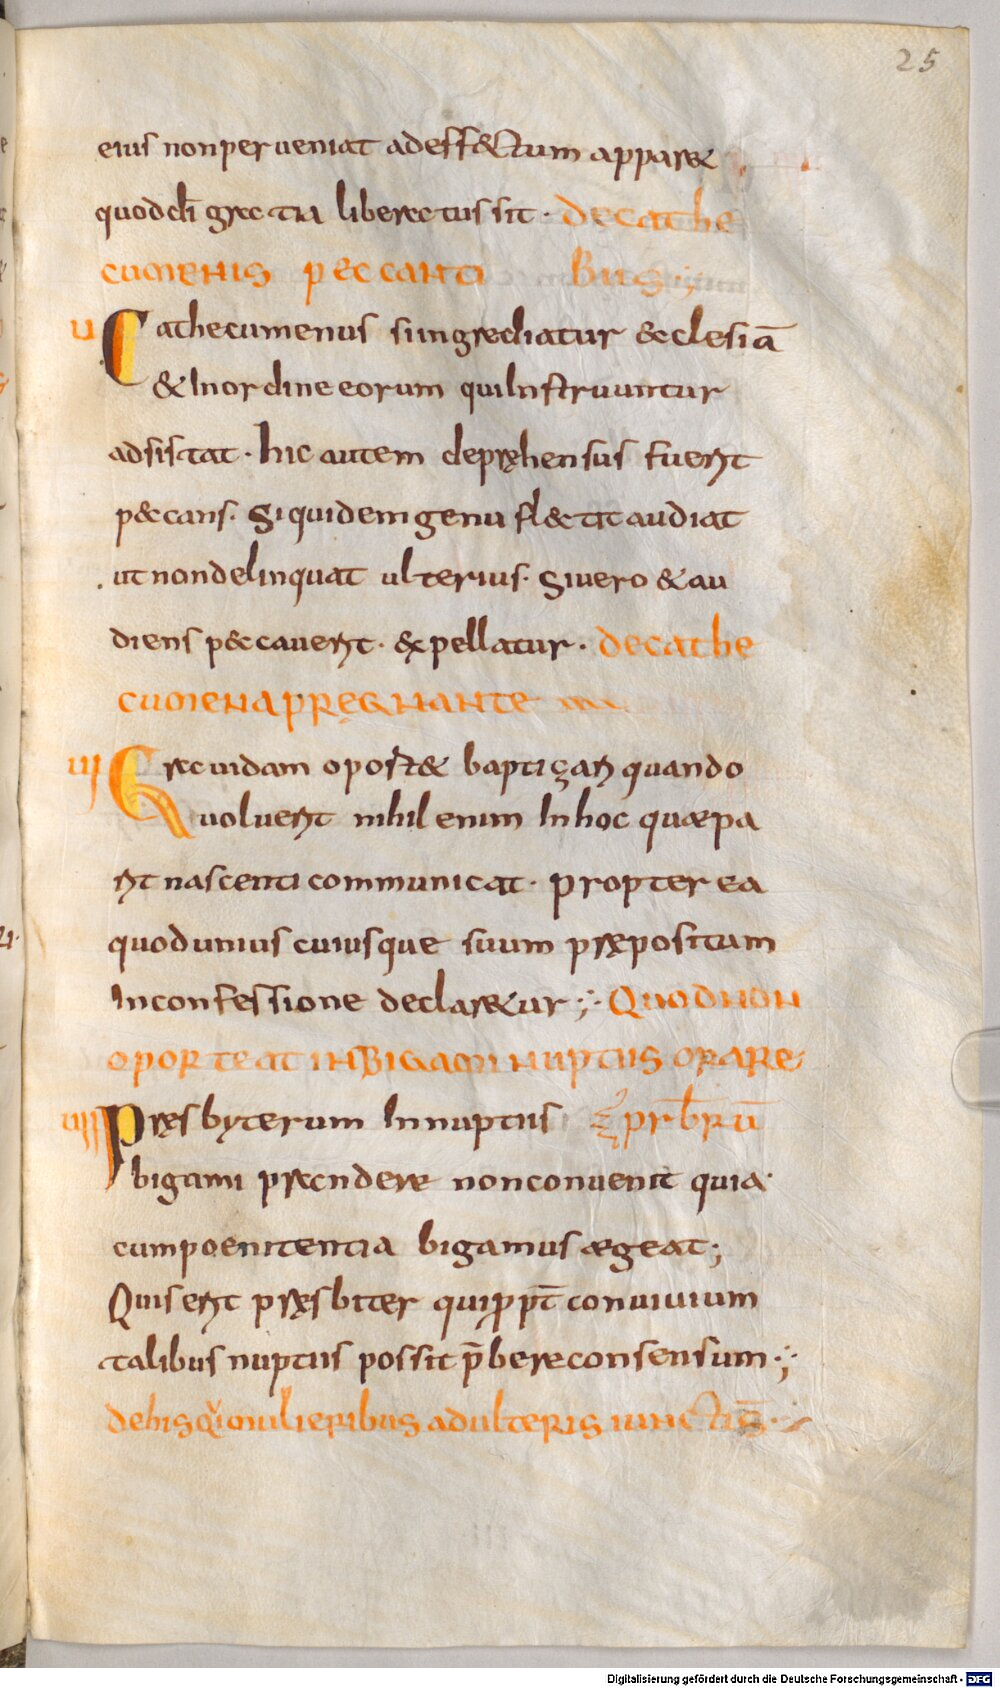 25
eius non perueniat ad effectum apparet
quod di gratia liberatus sit · de cathe
cumenis peccantibus ;
u Cathecumenus si ingrediatur ecclesiā
& in ordine eorum qui instruuntur
adsistat · hic autem depręhensus fuerit
peccans · si quidem genu flectit audiat
ut non delinquat ulterius · si uero & au
diens peccauerit · expellatur · de cathe
cumena pregnante
uj Grauidam oportet baptizari quando
uoluerit nihil enim in hoc quæ pa
rit nascenti communicat · propterea
quod unius cuiusque suum prępositum
in confessione declaretur ; Quod non
oporteat in bigami nuptiis orare
uij Pręsbyterum in nuptiis prb̄rū
bigami prandere non conuenit quia
cum poenitentia bigamus ægeat ;
Quis erit pręsbiter qui propt̄ conuiuium
talibus nuptiis possit p̄bere consensum ;
de his qui mulieribus adulteris iunctis
Digitalisierung gefördert durch die Deutsche Forschungsgemeinschaft - DFG